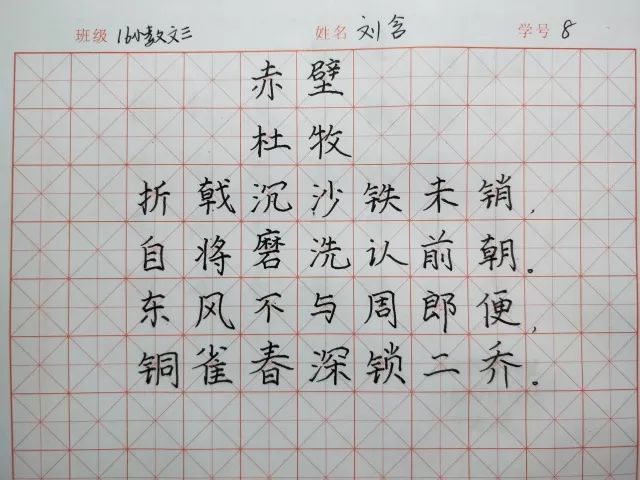 班级 16小教文三 姓名 刘含 学号 8
赤壁
杜牧
折戟沉沙铁未销,
自将磨洗认前朝。
东风不与周郎便,
铜雀春深锁二乔。